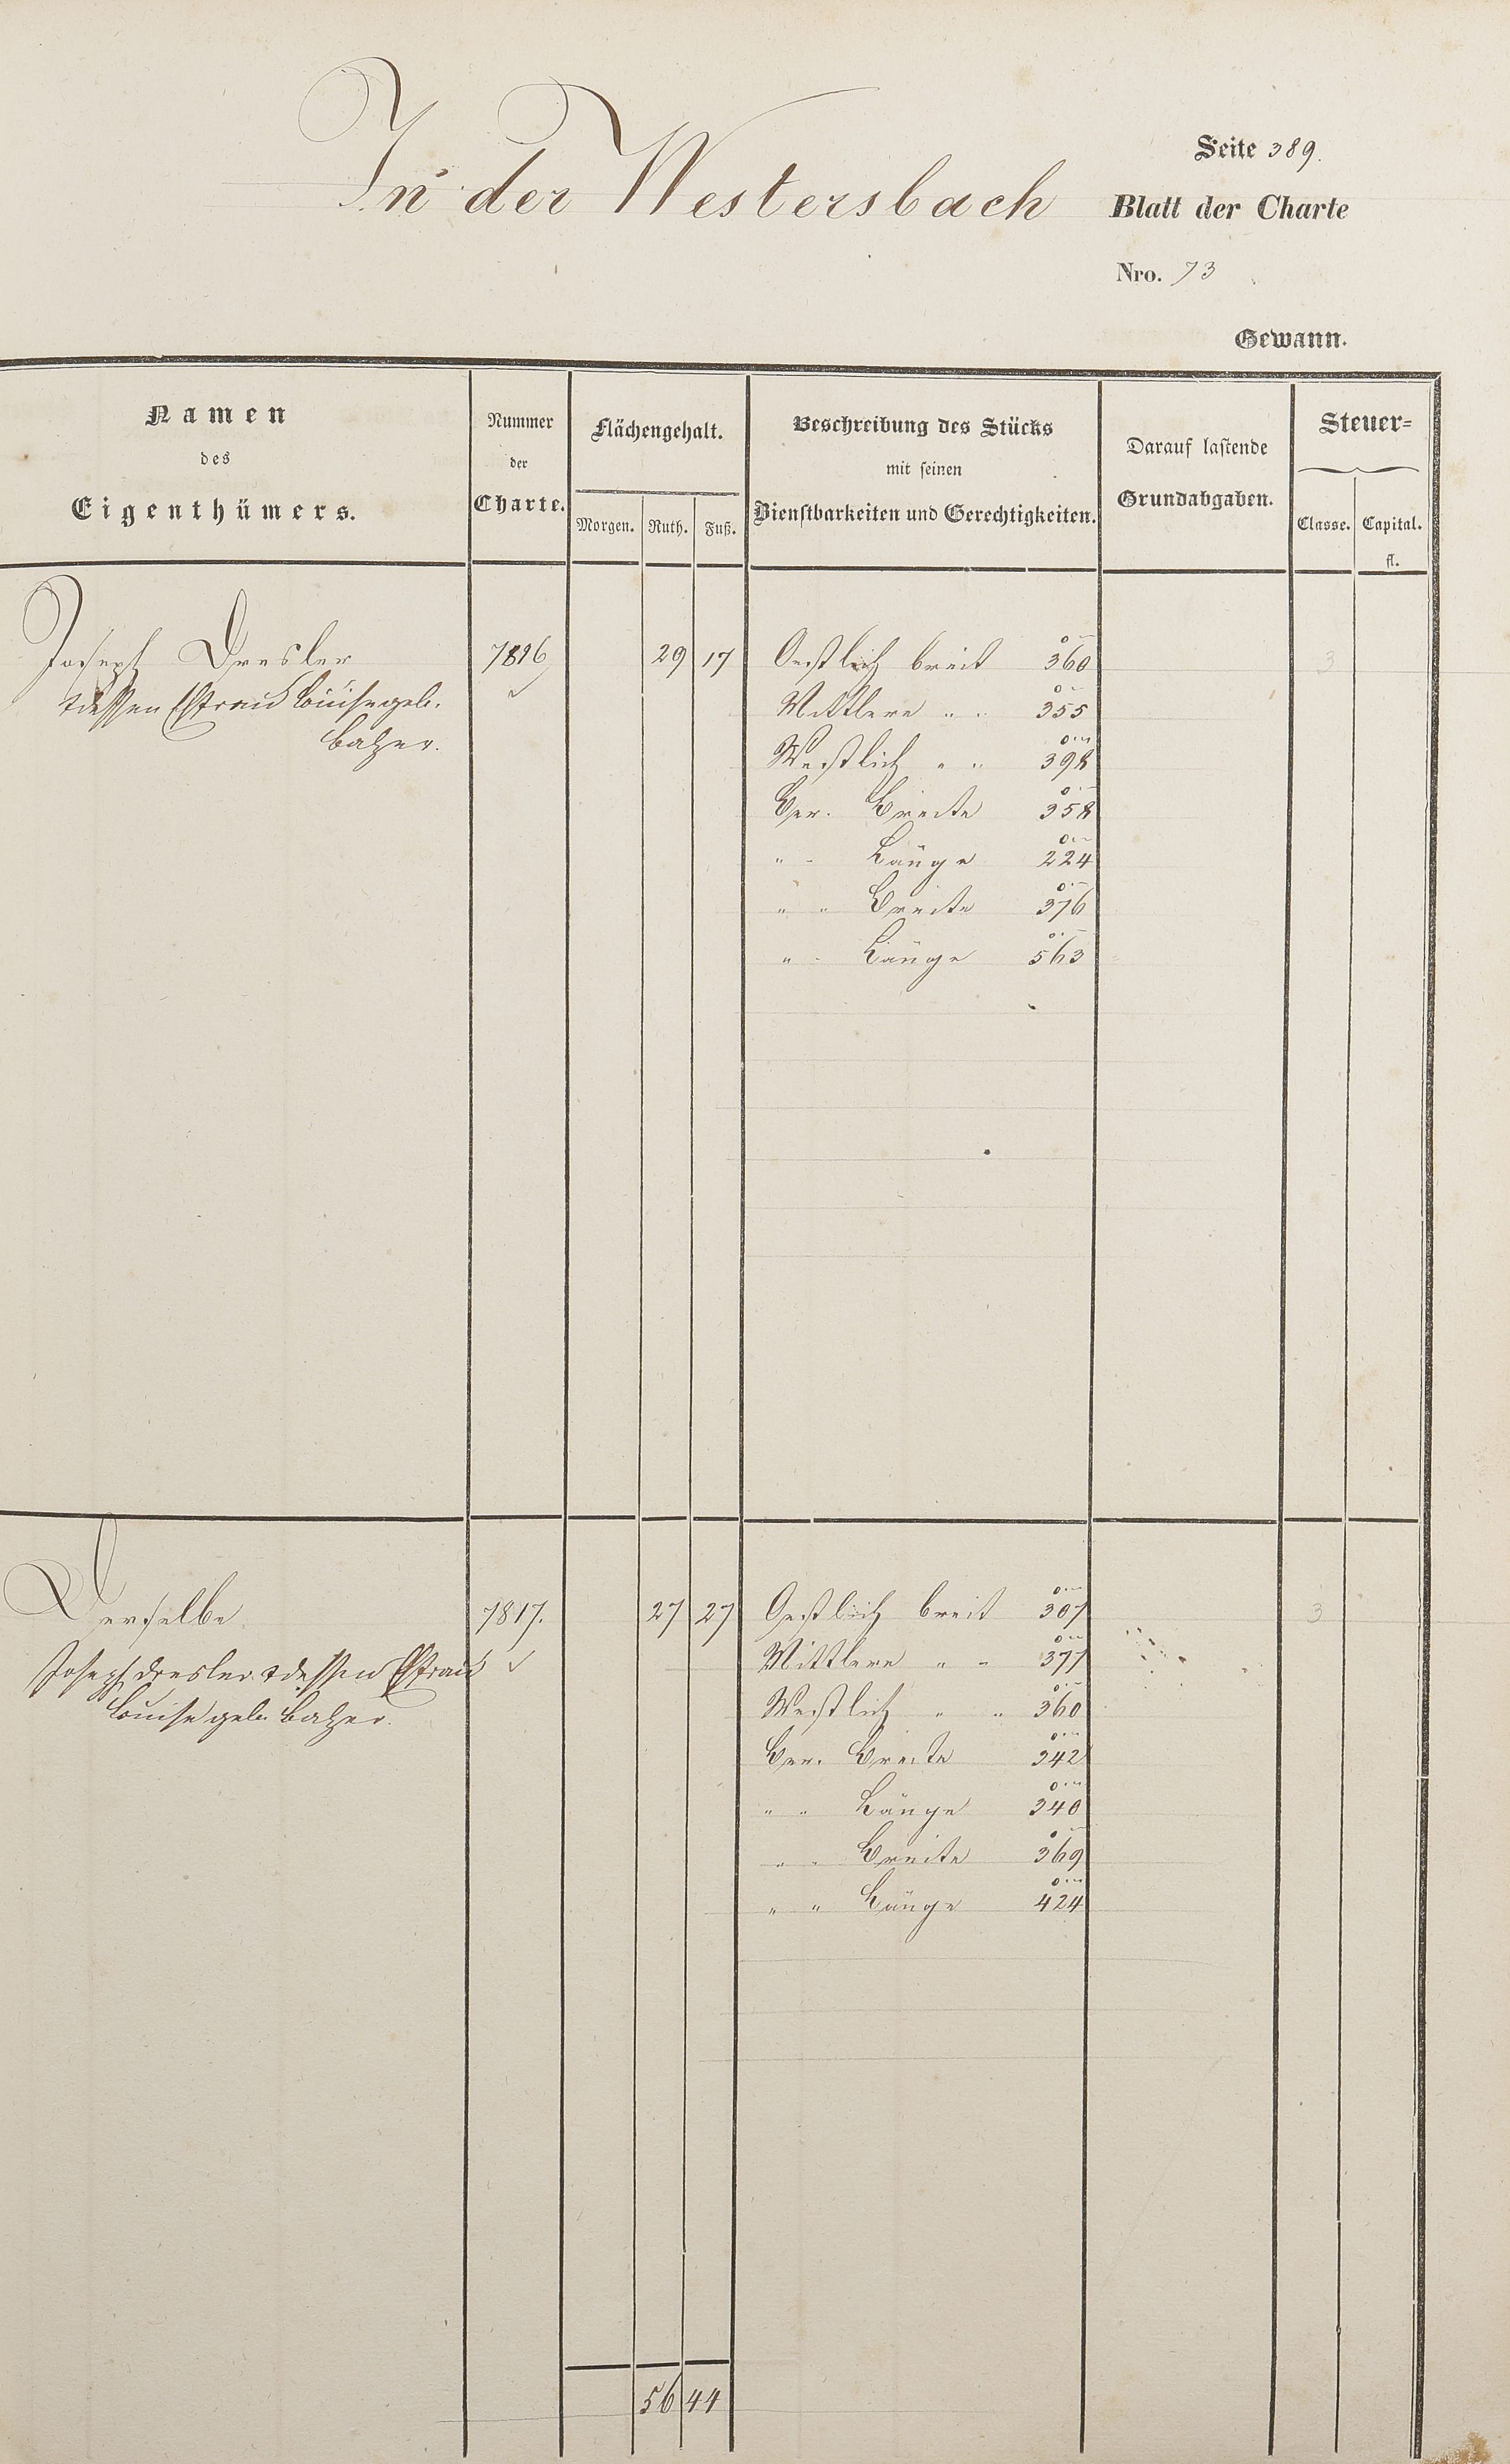 In der Westersbach
Seite 389.
Blatt der Charte
Nro. 73
Gewann.
Namen
des
Eigenthümers.
Nummer
der
Charte.
Flächengehalt.
Morgen. Ruth. Fuß.
Beschreibung des Stücks
mit seinen
Dienstbarkeiten und Gerechtigkeiten.
Darauf lastende
Grundabgaben.
Steuer-
Classe. Capital.
fl.
Joseph Dresler 7816 29 17 Oestlich breit 360 3
& dessen Ehefrau Louise geb. Mittlere " " 355
Balzer. Westlich " " 398
Ver. Breite 358
" " Länge 224
" " Breite 376
" " Länge 563
Derselbe 7817. 27 27 Oestlich breit 307 3
Joseph Dresler & dessen Ehefrau Mittlere " " 377
Louise geb. Balzer. Westlich " " 360
Ver. Breite 342
" " Länge 340
" " Breite 369
" " Länge 424
56 44